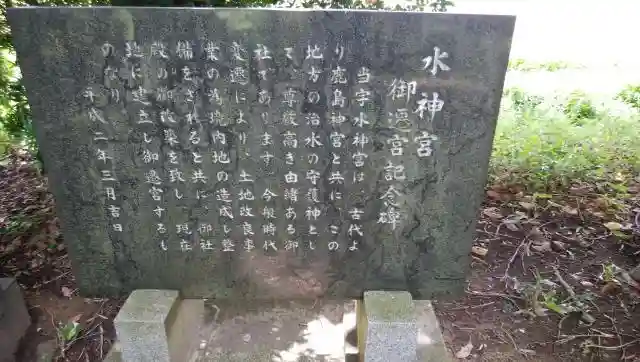 水神宮
御遷宮記念碑
当字水神宮は、古代よ
り鹿島神宮と共に、この
地方の治水の守護神とし
て、尊厳高き由緒ある御
社であります。今般時代
変遷により、土地改良事
業の為境内地の造成し整
備をされると共に、御社
殿の御改築を致し、現在
地に建立し御遷宮するも
のなり。
平成二年三月吉日